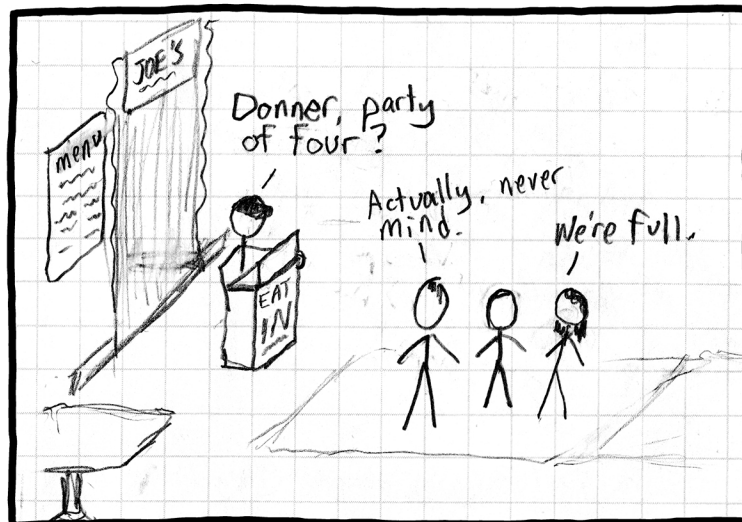 JOE'S
menu
Donner, party
of four?
EAT
IN
Actually, never
mind.
We're full.